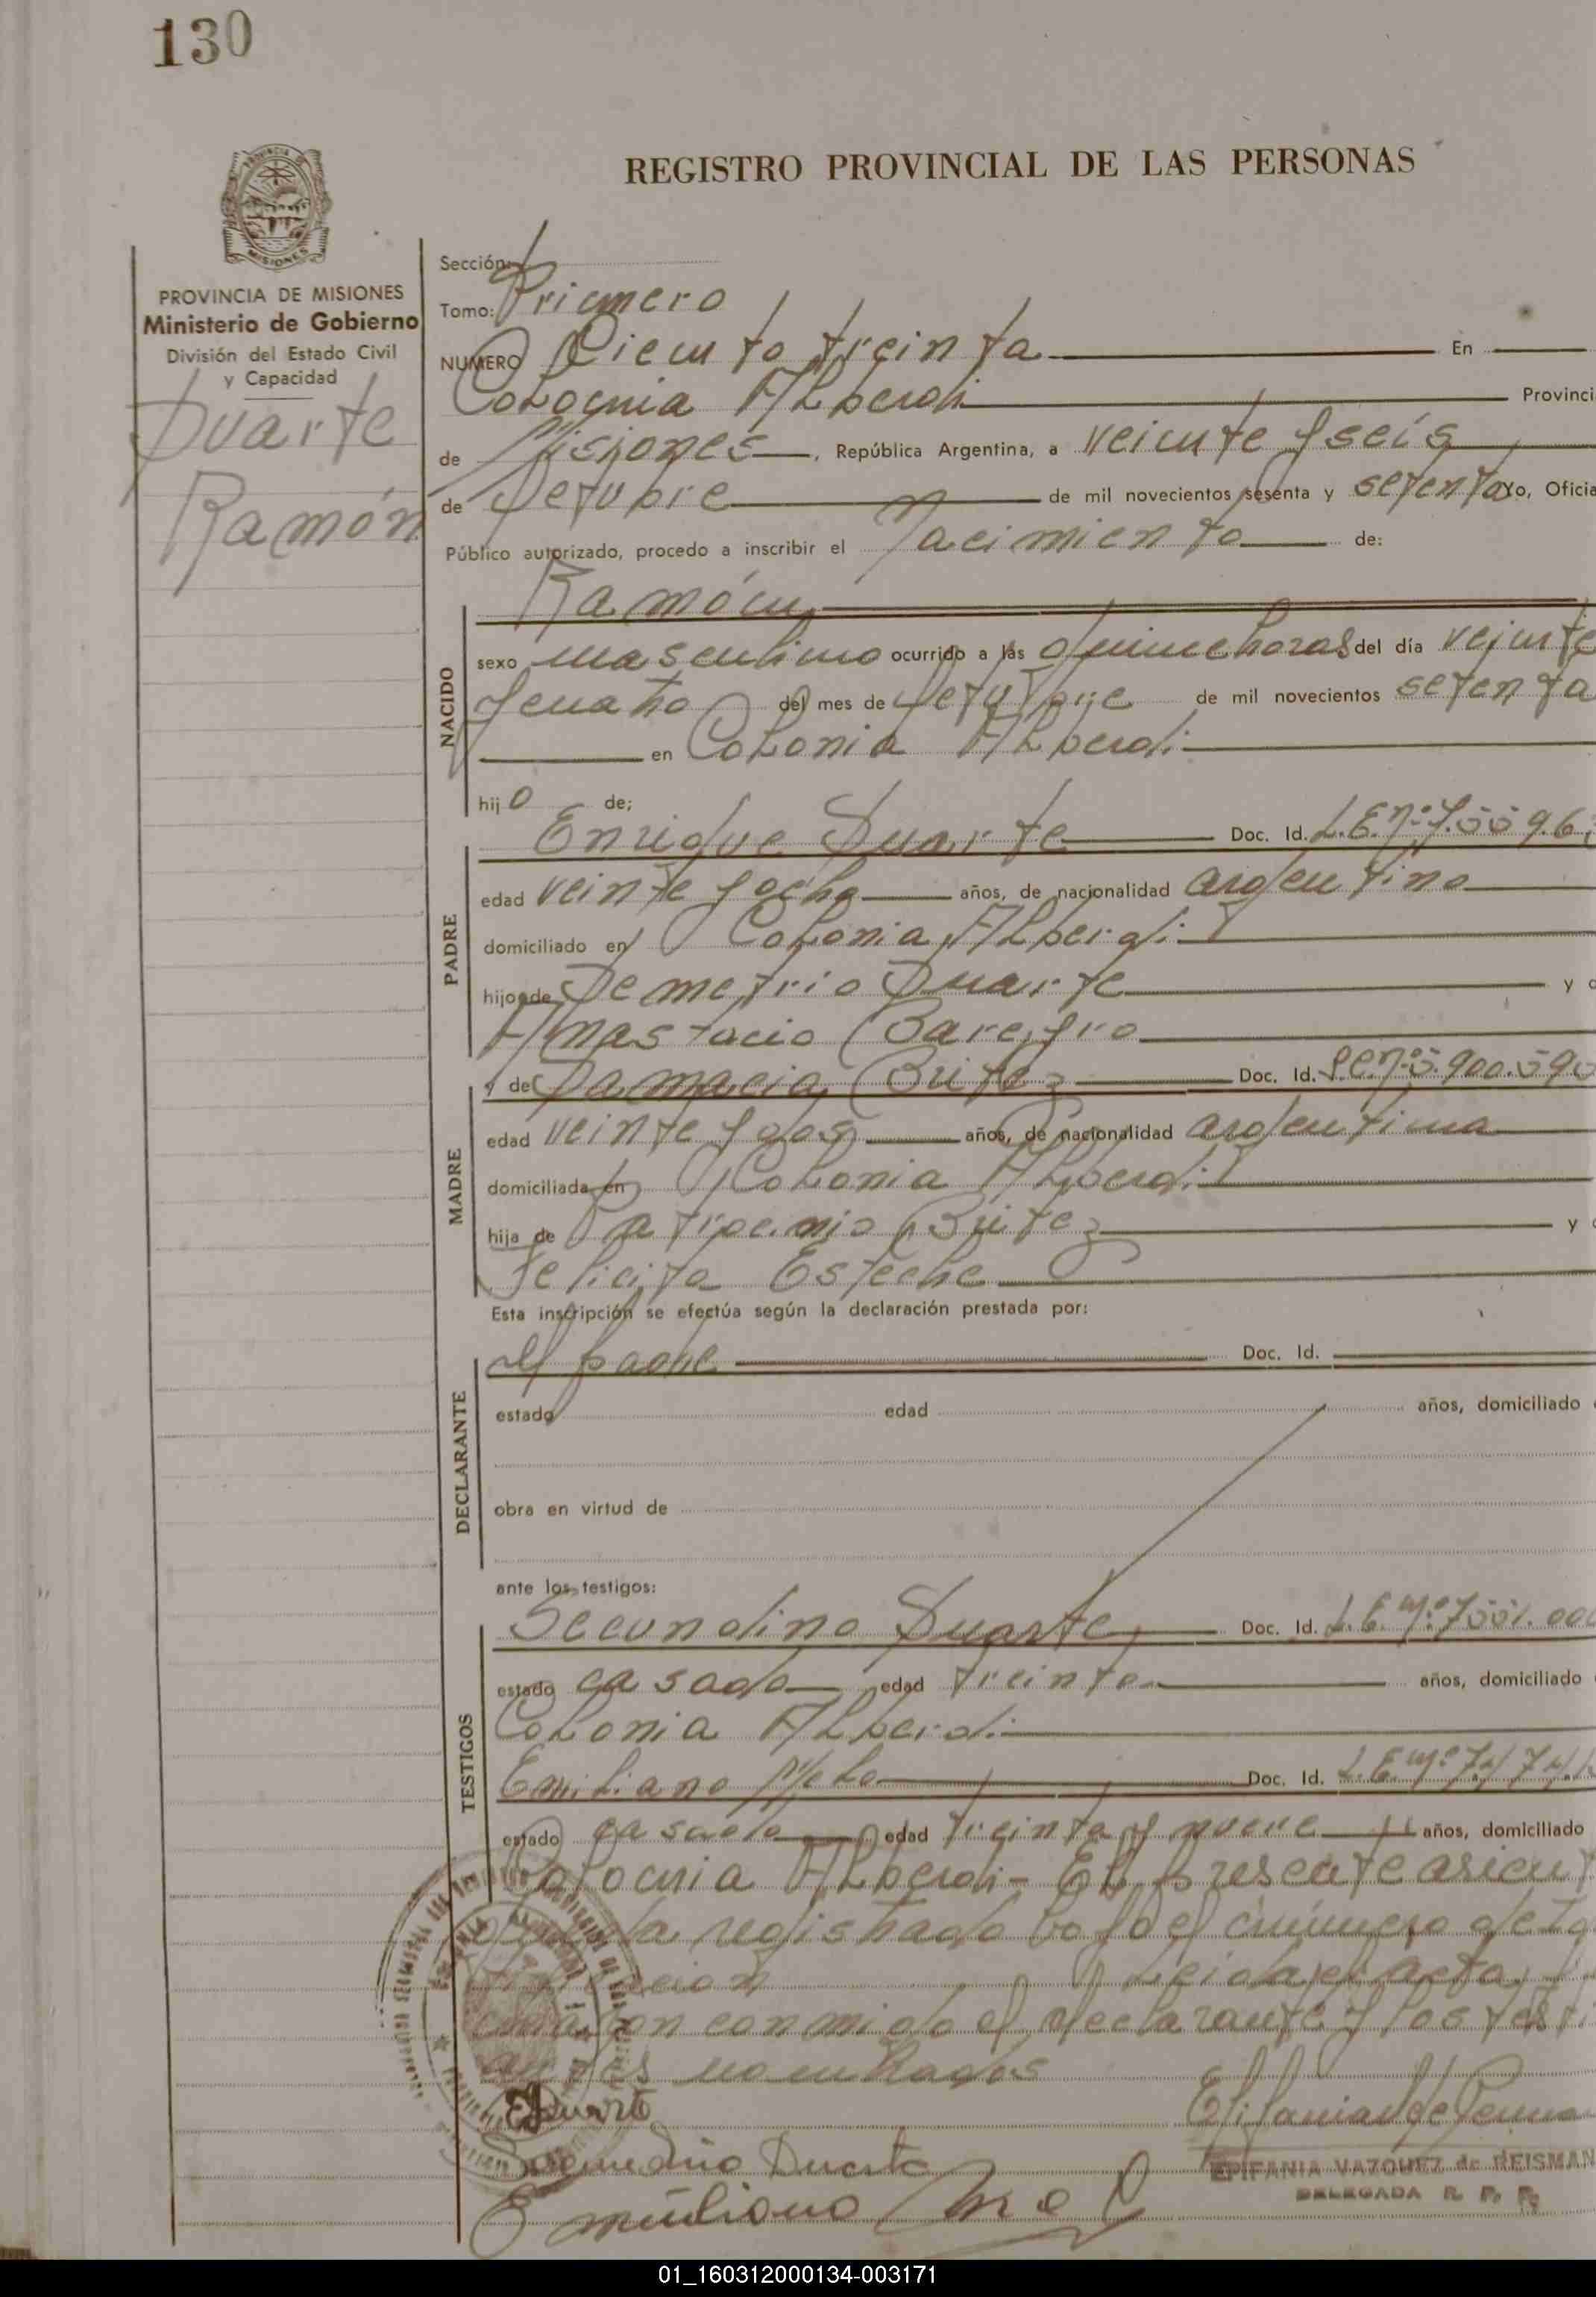 130
REGISTRO PROVINCIAL DE LAS PERSONAS
MISIONES
PROVINCIA DE MISIONES
Ministerio de Gobierno
División del Estado Civil
y Capacidad
Duarte
Ramón
Sección:
Tomo: Primero
NUMERO Ciento treinta En
Colonia Alberdi Provinci
de Misiones, República Argentina, a veinte y seis
de Octubre de mil novecientos sesenta y setenta yo, Oficia
Público autorizado, procedo a inscribir el Nacimiento de:
Ramón
NACIDO
sexo masculino ocurrido a las quince horas del día veinte
y cuatro del mes de Octubre de mil novecientos setenta
en Colonia Alberdi
hijo de;
PADRE
Enrique Duarte Doc. Id. L.E. nº 7.55
edad veinte y ocho años, de nacionalidad argentino
domiciliado en Colonia Alberdi
hijo de Demetrio Duarte y
Anastacia Bareyro
MADRE
y de Damacia Britez Doc. Id. nº 5.900.590
edad veinte y dos años, de nacionalidad argentina
domiciliada en Colonia Alberdi
hija de Patrocinio Britez y
Felicita Esteche
Esta inscripción se efectúa según la declaración prestada por:
DECLARANTE
el padre Doc. Id.
estado edad años, domiciliado
obra en virtud de
ante los testigos:
TESTIGOS
Secundino Duarte Doc. Id. L.E. nº 7551.00
estado casado edad treinta años, domiciliado
Colonia Alberdi
Emiliano Melo Doc. Id. L.E. nº
estado casado edad treinta y nueve años, domiciliado
Colonia Alberdi - El presente asien
queda registrado bajo el número de
Leida el acta,
con conmigo el declarante y los testi
nombrados
EDuarte
Secundino Duarte
EPIFANIA VAZQUEZ de REISMAN
DELEGADA R. P. P.
Emiliano Melo
01_160312000134-003171